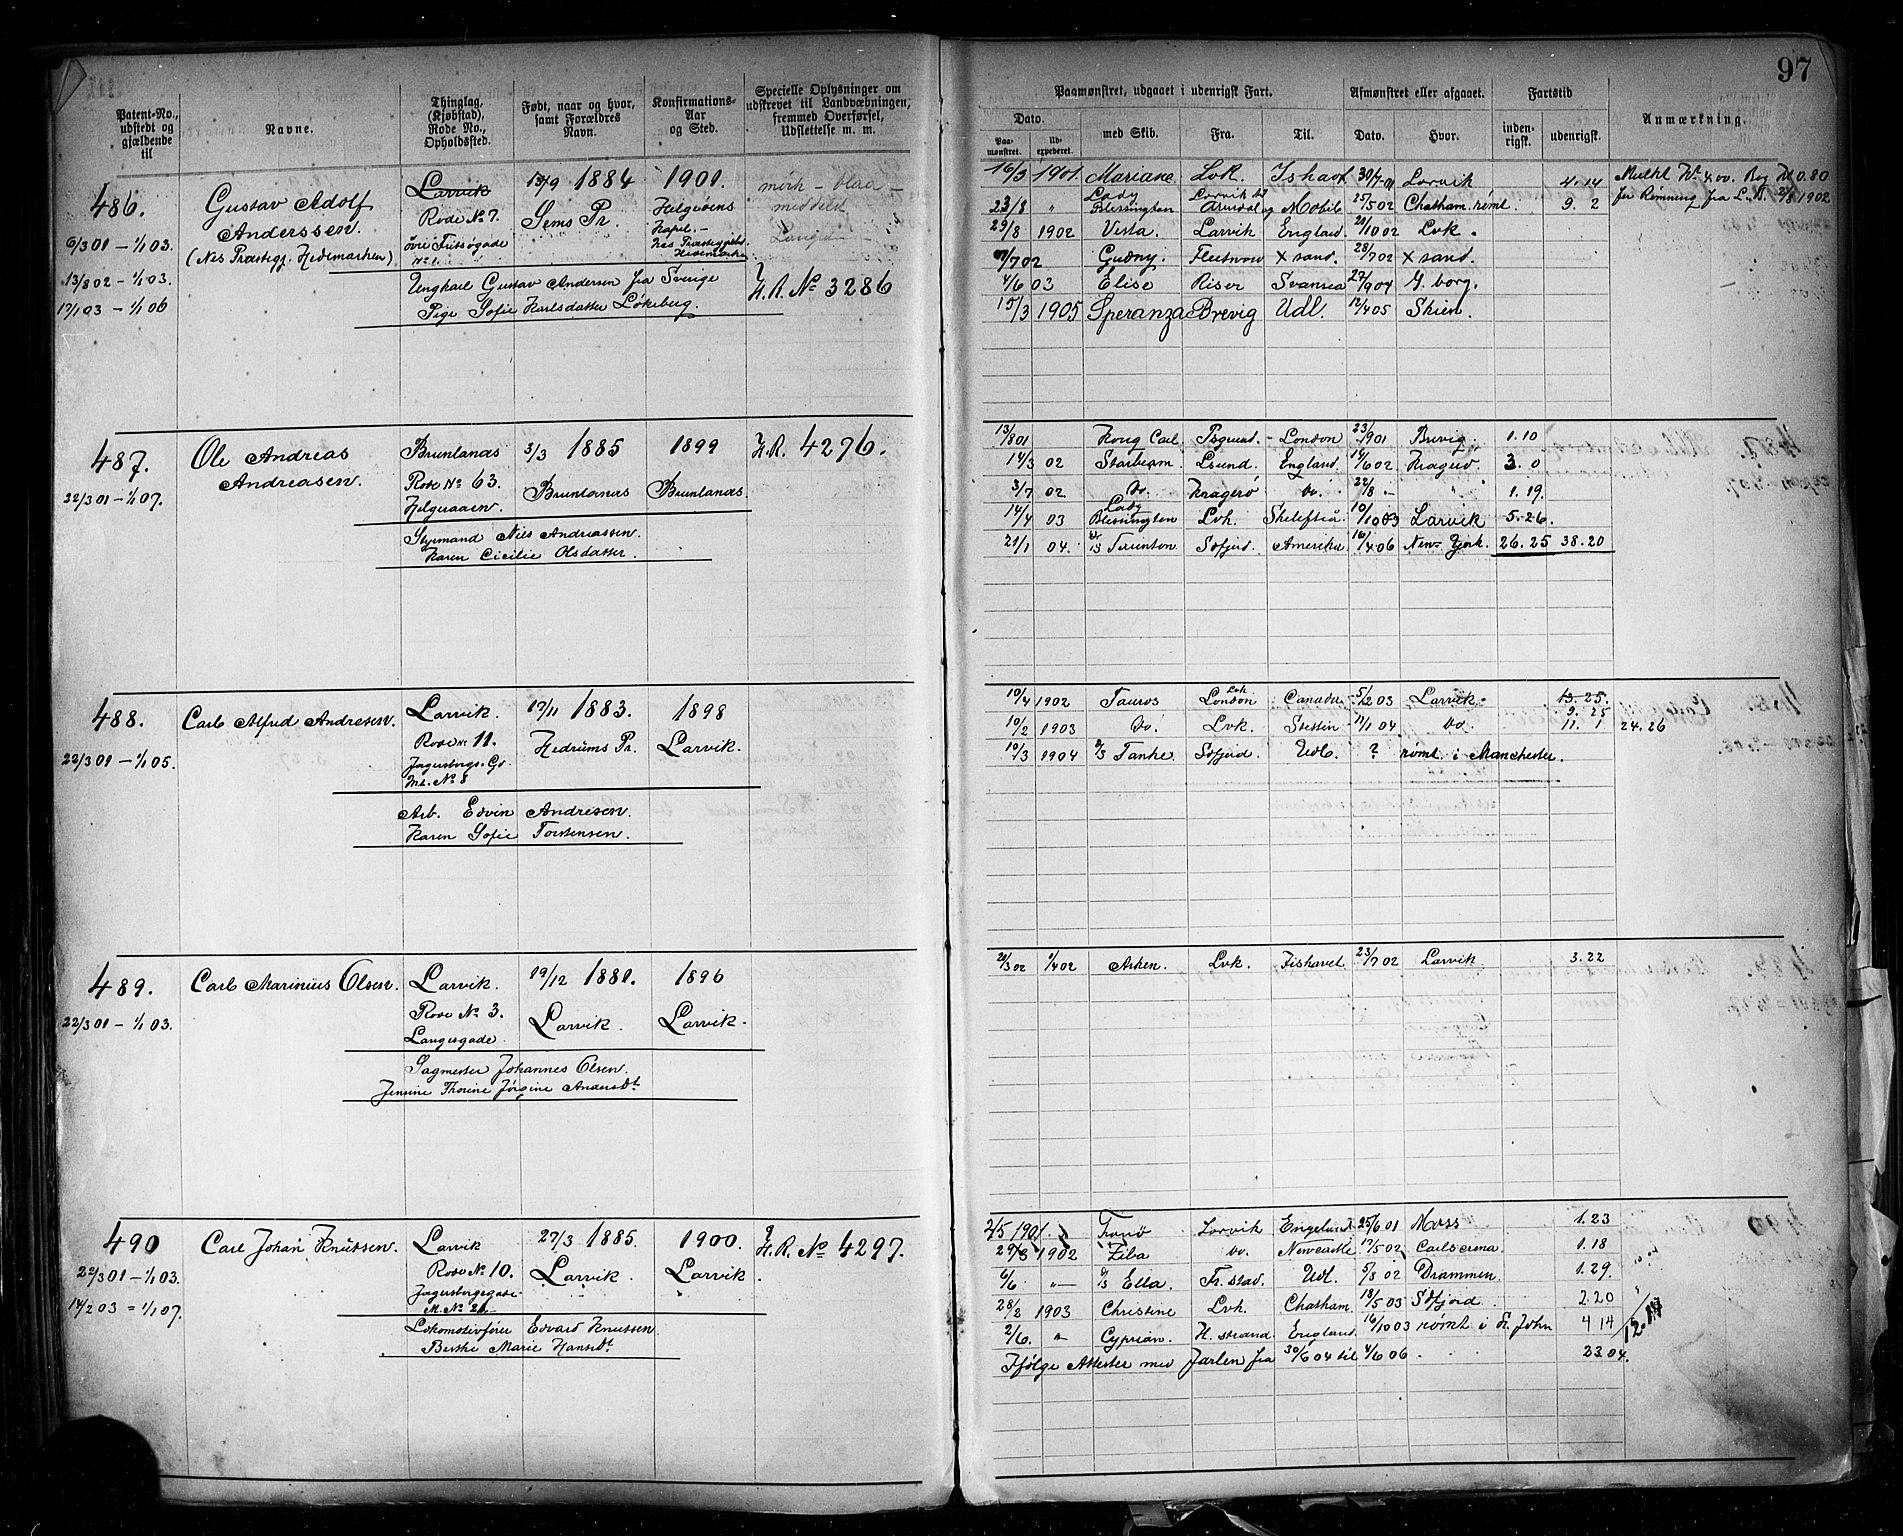 97
Patent-No., udstedt og gjældende til
Navne.
Thinglag, (Kjøbstad), Rode No., Opholdsted.
Født, naar og hvor, samt Forældres Navn.
Konfirmations-Aar og Sted.
Specielle Oplysninger om udskrevet til Landvæbningen, fremmed Overførsel, Udslettelse m. m.
Paamønstret, udgaaet i udenrigsk Fart.
Dato.
Paamønstret.
Udexpederet.
med Skib.
Fra.
Til.
Afmønstret eller afgaaet.
Dato.
Hvor.
Fartstid
indenrigsk.
udenrigsk.
Anmærkning.
486.
6/3 01 – 1/1 03.
13/8 02 – 1/1 03.
17/1 03 – 1/1 06
Gustav Adolf
Anderssen.
(Nes Præstegj. Hedemarken)
Larvik
Rode No 7.
øvre Fritsøgade
No 1.
13/9 1884
Sems Pr.
1901.
Helgøens
Kapel. –
Nes Præstegjeld
Hedemarken
mörk – blaa –
meddelt
Ungkarl Gustav Andersen fra Sverige
Pige Sofie Karlsdatter Løkeberg.
H.R. No 3286
16/3 1901 Mariane Lvk. Ishavet 30/7-01 Larvik 4. 14 Mulkt
for Rømning fra L. B. 2/8 1902
23/8 " Lady Blessington Larvik til Arendal og Mobile 25/5 02 Chatham römt. 9. 2
29/8 1902 Vesta. Larvik England 21/10 02 Lvk.
7/7 02 Gudny. Fleetwood X sand. 28/7 02 X sand.
4/6 03 Elise Risør Svansea 27/9 04 G. borg.
15/3 1905 Speranza Brevig Udl. 12/4 05 Skien.
487.
22/3 01 – 1/1 07.
Ole Andreas
Andreasen.
Brunlanæs
Rode No 63.
Helgeraaen.
3/3 1885
Brunlanæs
1899
Brunlanæs.
H.R. 4276.
Styrmand Nils Andreassen
Karen Cicilie Olsdatter.
13/8 01 Kong Carl. Psgrund. – London 23/9 01 Brevig. 1. 10
14/3 02 Starbeam. Lsund. England. 14/6 02 Kragerø. 3. 0
3/7 02 do. Kragerö do. 22/8 – " 1. 19.
14/4 03 Lady Blessington Lvk. Skelefteå. 10/10 03 Larvik 5. 26.
21/1 04. Sofjord. Amerika 16/4 06 New York. 26. 25 38. 20
488.
22/3 01 – 1/1 05.
Carl Alfred Andresen.
Larvik.
Rode No 11.
Jegersborgs. Gd
Mt. No 8
17/11 1883.
Hedrums Pr.
1898
Larvik.
Arb. Edvin Andresen.
Karen Sofie Torstensen.
10/4 1902 Tauros Lvk London Canada 5/12 03 Larvik 13. 25.
9. 25
10/2 1903 do Lvk Stettin 11/1 04 do. 11. 1 24. 26
10/3 1904 S/S Tanke. Sofjord Udl. ? römt i Manchester.
489.
22/3 01 – 1/1 03.
Carl Marinius Olsen.
Larvik.
Rode No 3.
Langesgade.
19/12 1881.
Larvik.
1896
Larvik.
Sagmester Johannes Olsen.
Jensine Thorine Jörgine Andersdt.
21/3 02 1/4 02 Asken. Lvk. Fishavet. 23/7 02 Larvik. 3. 22
490
22/3 01 – 1/1 03.
14/2 03 = 1/1 07.
Carl Johan Knutsen.
Larvik
Rode No 10.
Jegersborgsgade
M. No 21
27/3 1885.
Larvik.
1900.
Larvik.
H.R. No 4297.
Lokomotivfører Edvard Knutsen.
Berthe Marie Hansdt.
2/5 1901. Tromö Larvik England 25/6 01 Moss 1. 23
29/3 1902 Ziba do. Newcastle 17/5 02 Carlscrona 1. 18
6/6 " S/S Ella Fr. stad. Udl. 5/8 02 Drammen. 1. 29.
28/2 1903 Christine Lvk. Chatham. 18/5 03 Sfjord 2. 20
2/6. " Cyprian. H. strand. England. 16/10 03 römt i St. John 4 14
12. 14
Ifölge Attester med Jarlen fra 30/6 04 til 4/6 06 23 04.